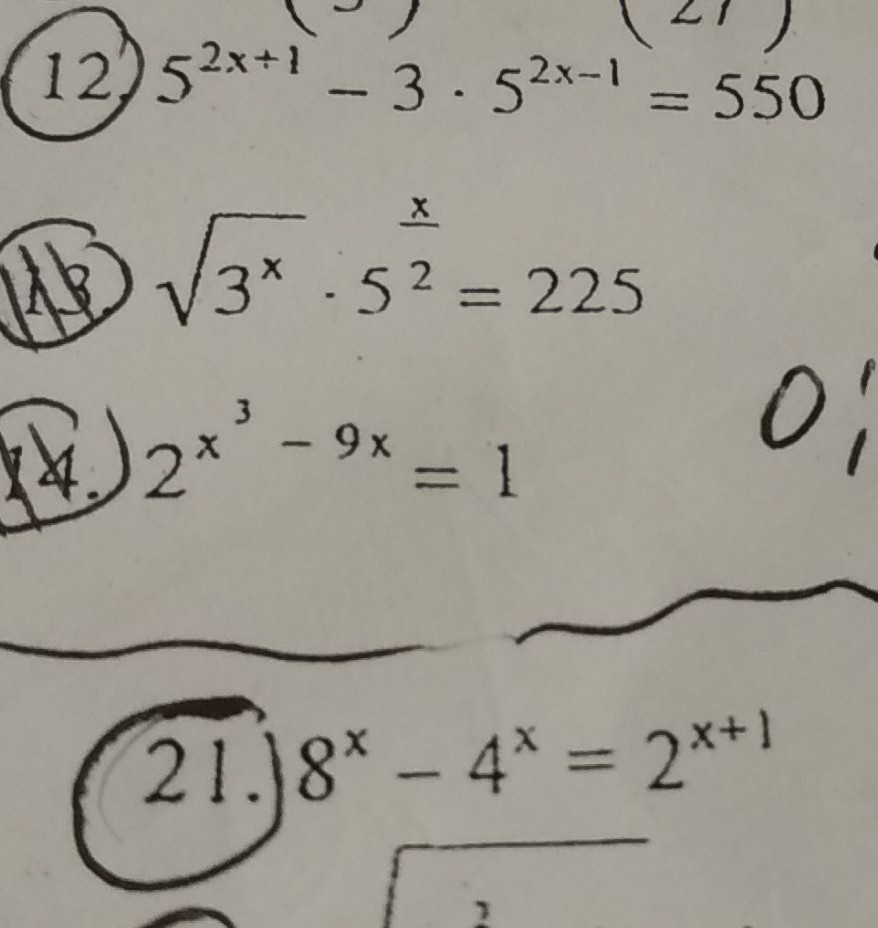 12. 5^{2x+1} − 3 · 5^{2x−1} = 550
13. √(3^x) · 5^{x/2} = 225
14. 2^{x^3 − 9x} = 1
21. 8^x − 4^x = 2^{x+1}